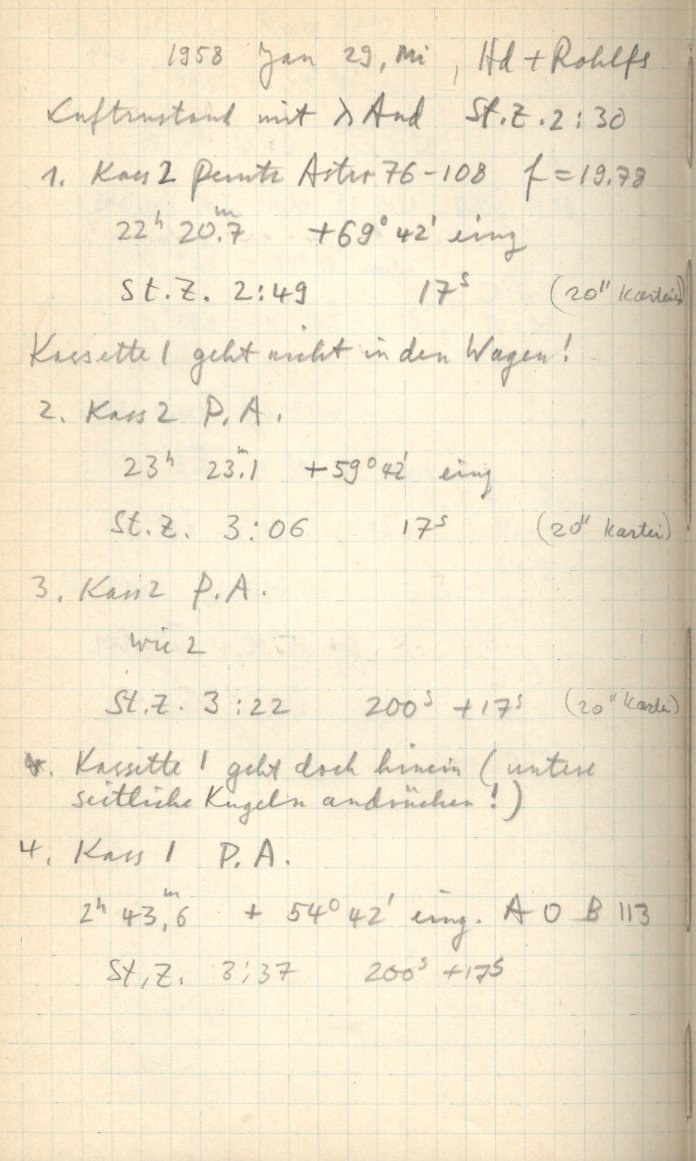 1958 Jan 29, Mi, Hd + Rohlfs
Luftzustand mit λ And St.Z. 2:30
1. Kass 2 Perutz Astro 76-108 f = 19.78
22ʰ 20ᵐ.7 +69° 42' eing
St.Z. 2:49 17ˢ (20" Kartei)
Kassette 1 geht nicht in den Wagen!
2. Kass 2 P.A.
23ʰ 23ᵐ.1 +59° 42' eing
St.Z. 3:06 17ˢ (20" Kartei)
3. Kass 2 P.A.
wie 2
St.Z. 3:22 200ˢ +17ˢ (20" Kartei)
Kassette 1 geht doch hinein (untere
seitliche Kugeln andrücken!)
4. Kass 1 P.A.
2ʰ 43,ᵐ6 + 54° 42' eing. A O B 113
St.Z. 3:37 200ˢ +17ˢ